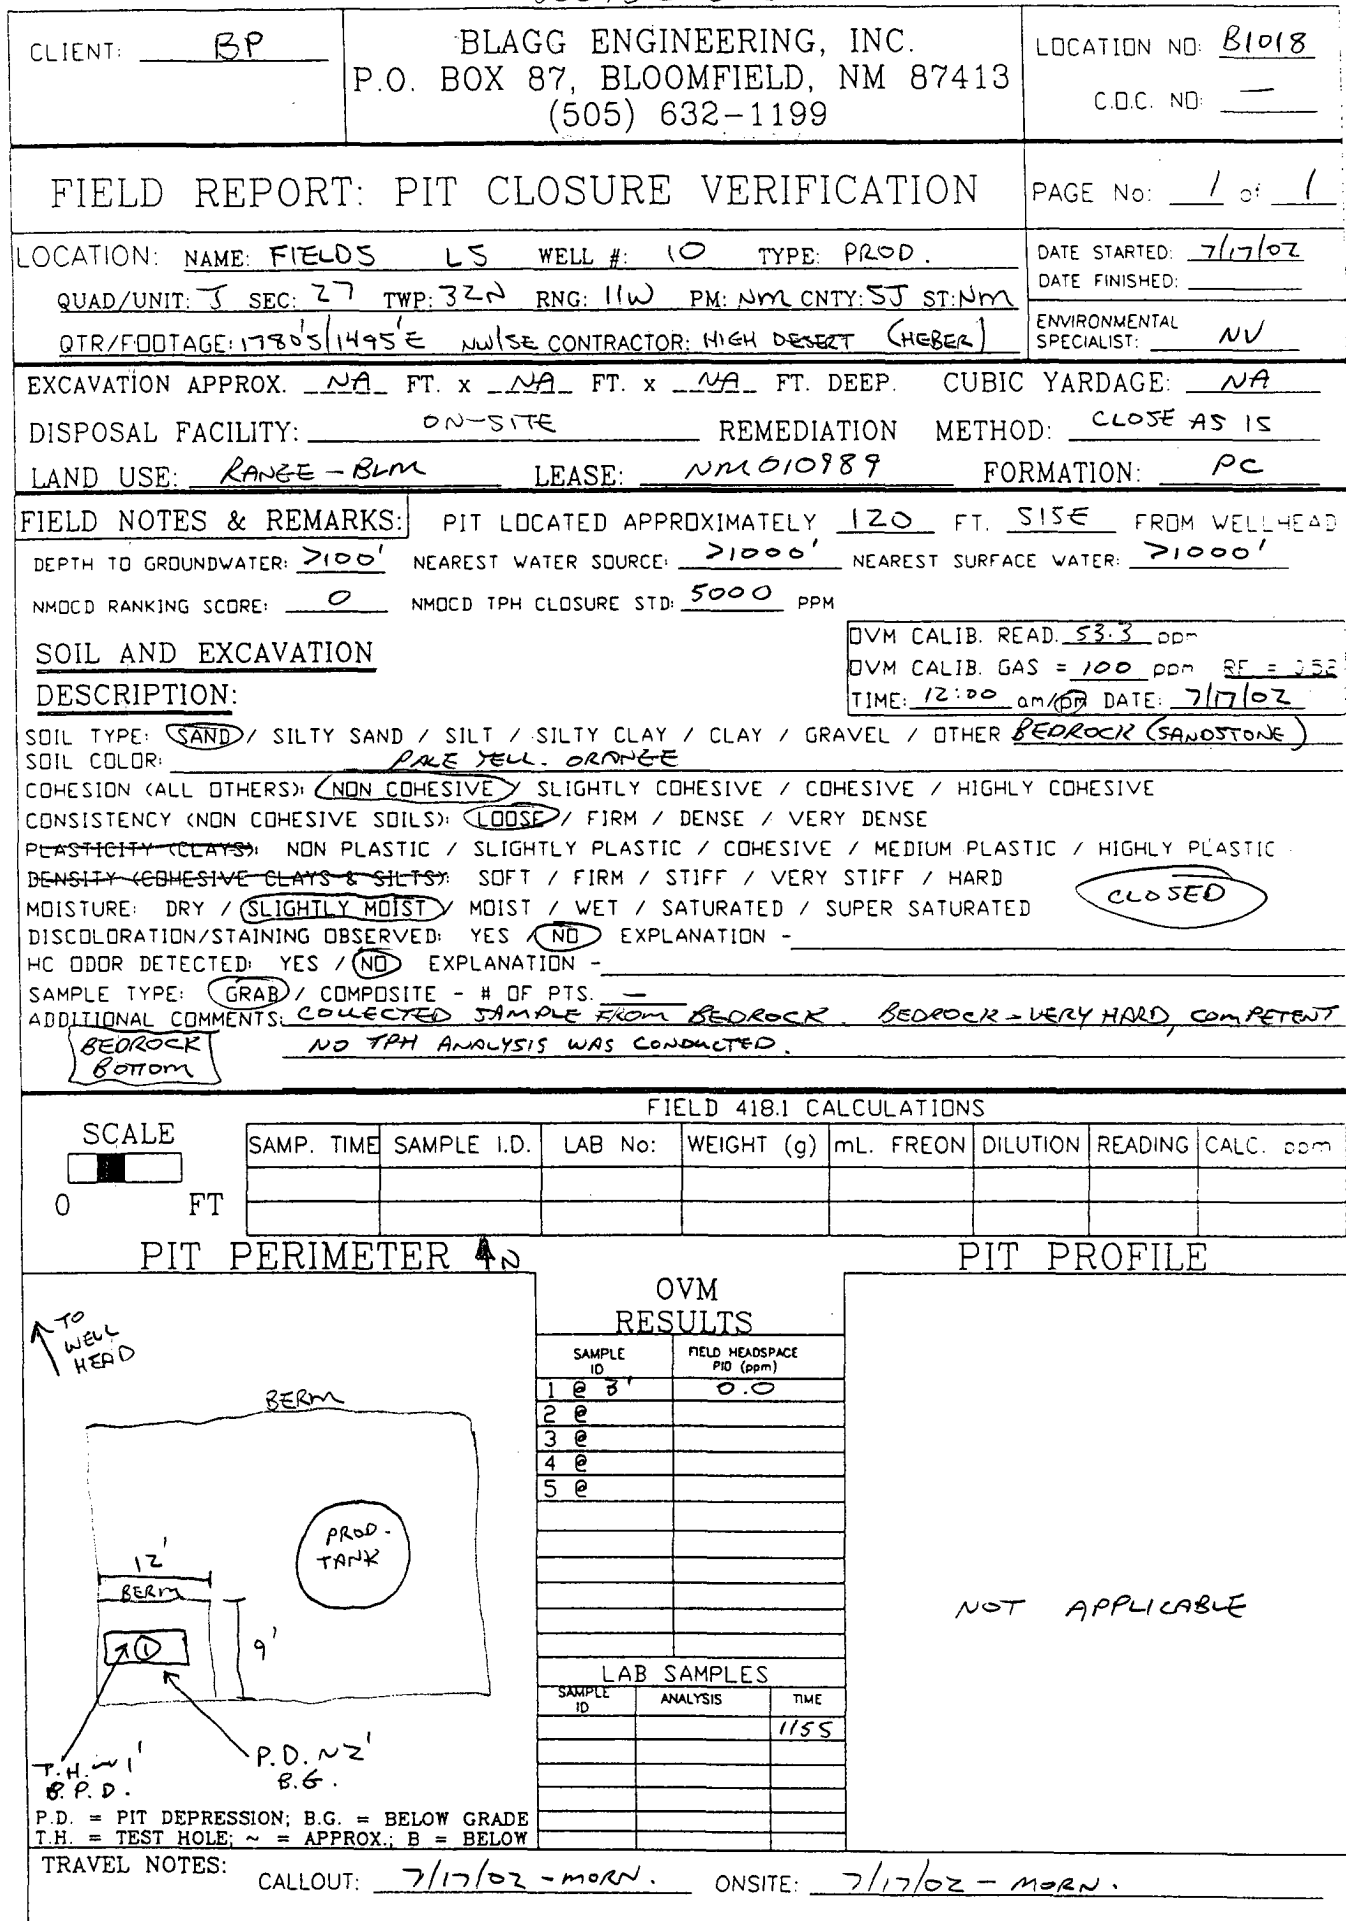 CLIENT: BP
BLAGG ENGINEERING, INC.
P.O. BOX 87, BLOOMFIELD, NM 87413
(505) 632-1199
LOCATION NO: B1018
C.O.C. NO: —
FIELD REPORT: PIT CLOSURE VERIFICATION
PAGE No: 1 of 1
LOCATION: NAME: FIELDS LS WELL #: 10 TYPE: PROD.
QUAD/UNIT: J SEC: 27 TWP: 32N RNG: 11W PM: NM CNTY: SJ ST: NM
QTR/FOOTAGE: 1780'S/1495'E NW/SE CONTRACTOR: HIGH DESERT (HEBER)
DATE STARTED: 7/17/02
DATE FINISHED:
ENVIRONMENTAL SPECIALIST: NV
EXCAVATION APPROX. NA FT. x NA FT. x NA FT. DEEP. CUBIC YARDAGE: NA
DISPOSAL FACILITY: ON-SITE REMEDIATION METHOD: CLOSE AS IS
LAND USE: RANGE - BLM LEASE: NM010989 FORMATION: PC
FIELD NOTES & REMARKS: PIT LOCATED APPROXIMATELY 120 FT. S15E FROM WELLHEAD
DEPTH TO GROUNDWATER: >100' NEAREST WATER SOURCE: >1000' NEAREST SURFACE WATER: >1000'
NMOCD RANKING SCORE: 0 NMOCD TPH CLOSURE STD: 5000 PPM
SOIL AND EXCAVATION
DESCRIPTION:
OVM CALIB. READ. 53.3 ppm
OVM CALIB. GAS = 100 ppm RF = 0.52
TIME: 12:00 am/pm DATE: 7/17/02
SOIL TYPE: SAND / SILTY SAND / SILT / SILTY CLAY / CLAY / GRAVEL / OTHER BEDROCK (SANDSTONE)
SOIL COLOR: PALE YELL. ORANGE
COHESION (ALL OTHERS): NON COHESIVE / SLIGHTLY COHESIVE / COHESIVE / HIGHLY COHESIVE
CONSISTENCY (NON COHESIVE SOILS): LOOSE / FIRM / DENSE / VERY DENSE
PLASTICITY (CLAYS): NON PLASTIC / SLIGHTLY PLASTIC / COHESIVE / MEDIUM PLASTIC / HIGHLY PLASTIC
DENSITY (COHESIVE CLAYS & SILTS): SOFT / FIRM / STIFF / VERY STIFF / HARD
MOISTURE: DRY / SLIGHTLY MOIST / MOIST / WET / SATURATED / SUPER SATURATED
CLOSED
DISCOLORATION/STAINING OBSERVED: YES / NO EXPLANATION -
HC ODOR DETECTED: YES / NO EXPLANATION -
SAMPLE TYPE: GRAB / COMPOSITE - # OF PTS. —
ADDITIONAL COMMENTS: COLLECTED SAMPLE FROM BEDROCK. BEDROCK - VERY HARD, COMPETENT
NO TPH ANALYSIS WAS CONDUCTED.
BEDROCK
BOTTOM
FIELD 418.1 CALCULATIONS
SCALE
0 FT
SAMP. TIME SAMPLE I.D. LAB No: WEIGHT (g) mL. FREON DILUTION READING CALC. ppm
PIT PERIMETER N
PIT PROFILE
TO
WELL
HEAD
BERM
PROD.
TANK
12'
BERM
9'
1
T.H. ~1'
B.P.D.
P.D. ~2'
B.G.
P.D. = PIT DEPRESSION; B.G. = BELOW GRADE
T.H. = TEST HOLE; ~ = APPROX.; B = BELOW
OVM
RESULTS
SAMPLE ID FIELD HEADSPACE PID (ppm)
1 @ 3' 0.0
2 @
3 @
4 @
5 @
LAB SAMPLES
SAMPLE ID ANALYSIS TIME
1155
NOT APPLICABLE
TRAVEL NOTES: CALLOUT: 7/17/02 - MORN. ONSITE: 7/17/02 - MORN.